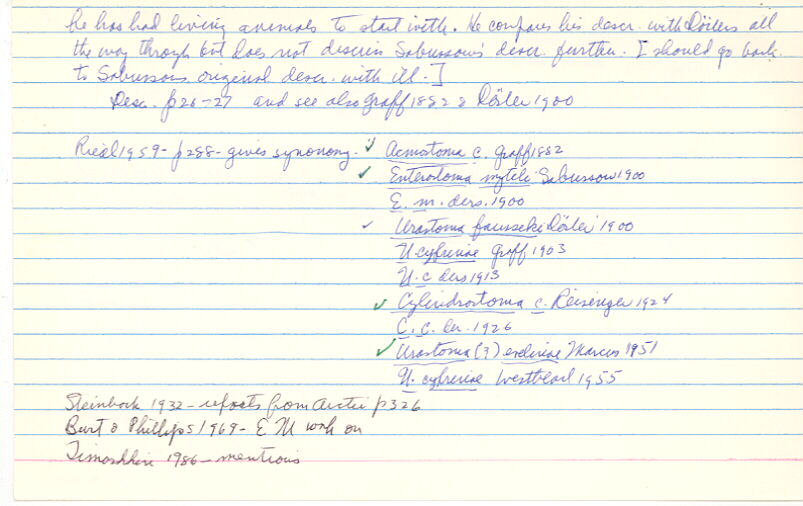 he has had living animals to start with. He compares his descr. with Dörlers all
the way through but does not discuss Sabussow's descr. further. I should go back
to Sabussows original descr. with ill.]
Desc. p26-27 and see also Graff 1882 & Dörler 1900
Riedl 1959- p288- gives synonomy. ✓ Acmostoma c. Graff 1882
✓ Enterostoma mytili Sabussow 1900
E. m. ders. 1900
✓ Urastoma fausseki Dörler 1900
U cyprinae Graff 1903
U. c ders 1913
✓ Cylindrostoma c. Reisinger 1924
C. c. 1926
✓ Urastoma (?) evelinae Marcus 1951
U. cyprinae Westblad 1955
Steinbock 1932- reports from Arctic p326
Burt & Phillips 1969- E M work on
Timoshkin 1986- mentions